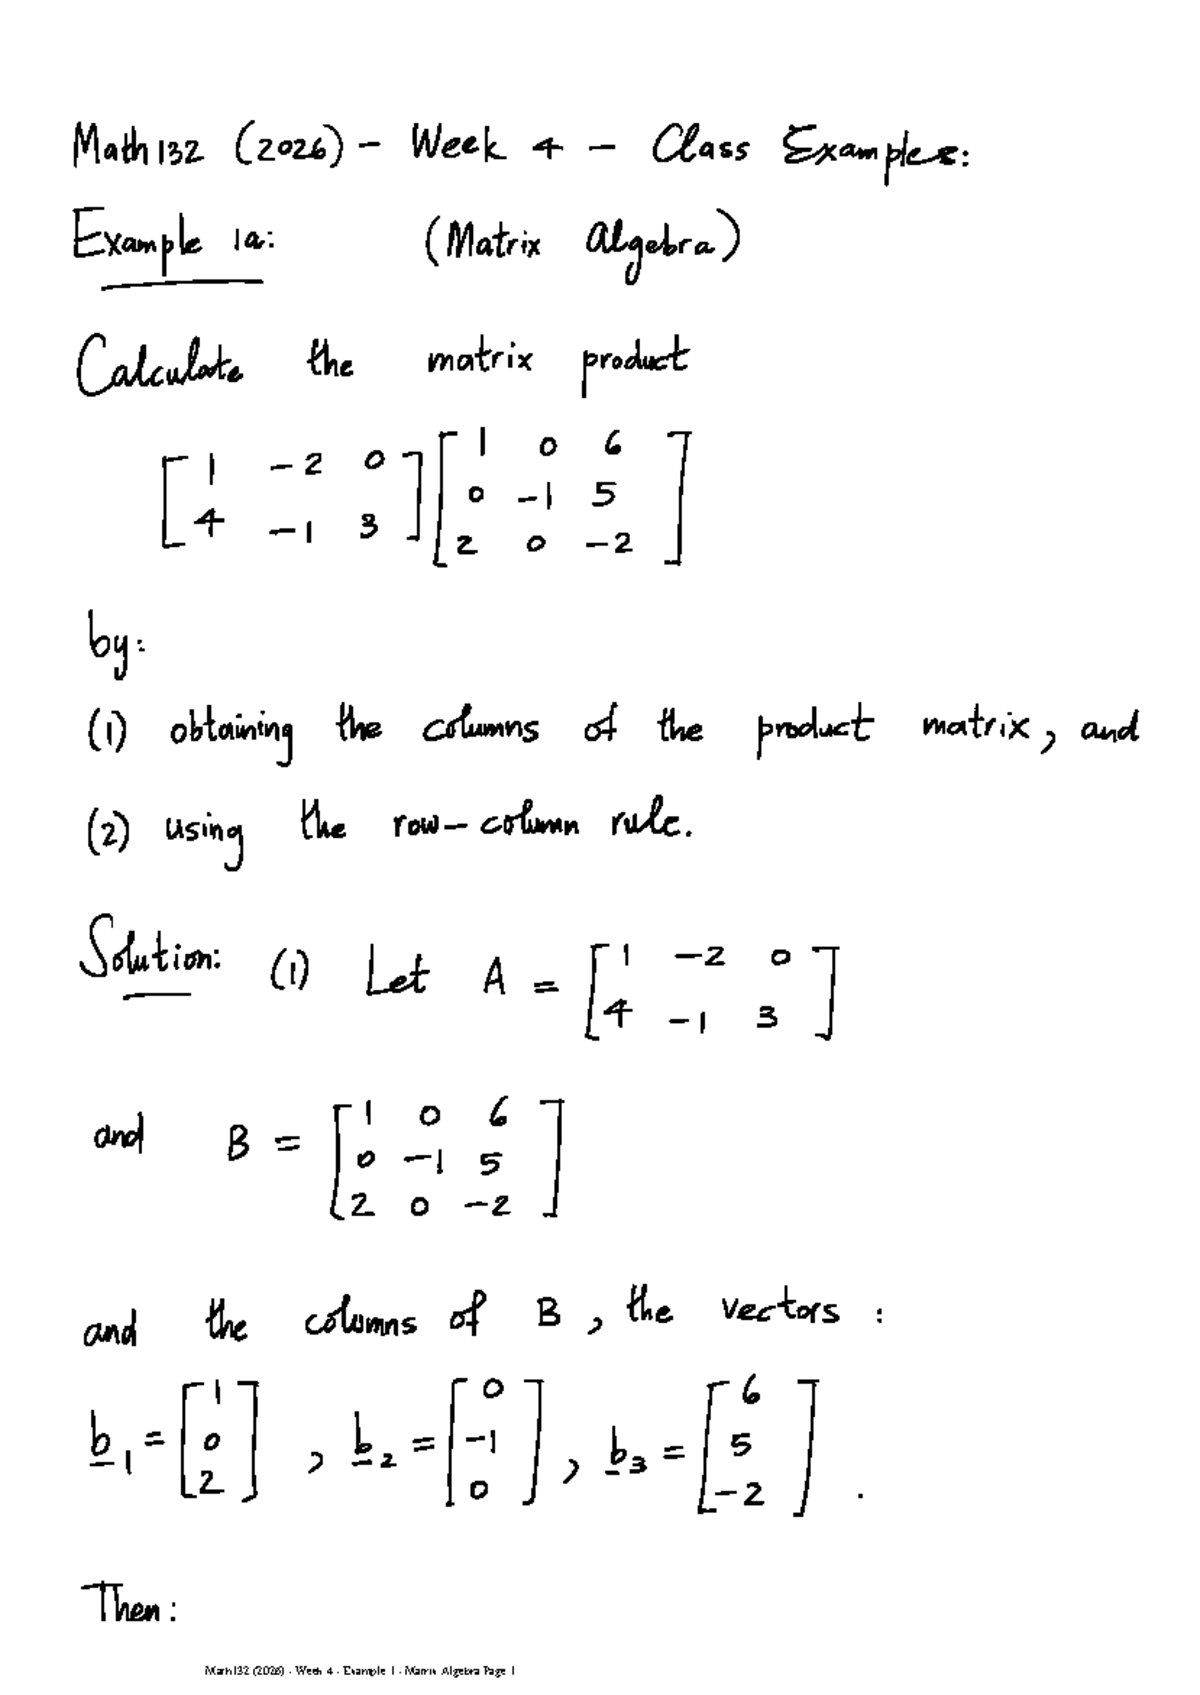 Math132 (2026) - Week 4 - Class Examples:
Example 1a: (Matrix Algebra)
Calculate the matrix product
[ 1 -2 0 ] [ 1 0 6 ]
[ 4 -1 3 ] [ 0 -1 5 ]
[ 2 0 -2 ]
by:
(1) obtaining the columns of the product matrix, and
(2) using the row-column rule.
Solution: (1) Let A = [ 1 -2 0 ]
[ 4 -1 3 ]
and B = [ 1 0 6 ]
[ 0 -1 5 ]
[ 2 0 -2 ]
and the columns of B, the vectors:
b1 = [ 1 ] , b2 = [ 0 ] , b3 = [ 6 ]
[ 0 ] [ -1 ] [ 5 ]
[ 2 ] [ 0 ] [ -2 ] .
Then:
Math132 (2026) - Week 4 - Example 1 - Matrix Algebra Page 1